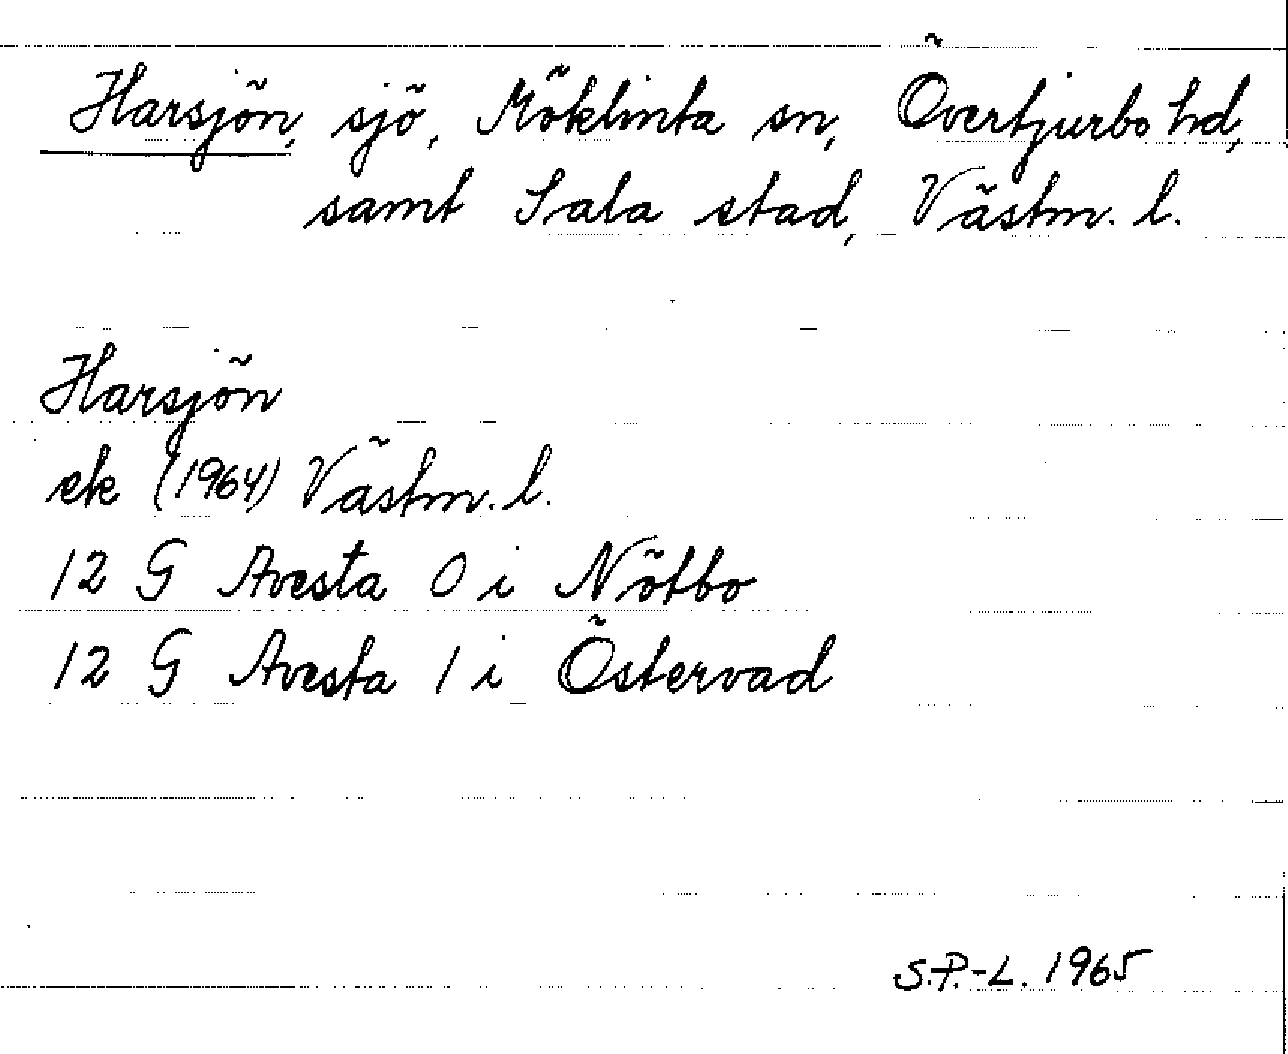 Harsjön, sjö, Möklinta sn, Övertjurbo hd,
samt Sala stad, Västm. l.
Harsjön
ek (1964) Västm. l.
12 G Avesta 0 i Nötbo
12 G Avesta 1 i Östervad
S.P.-L. 1965